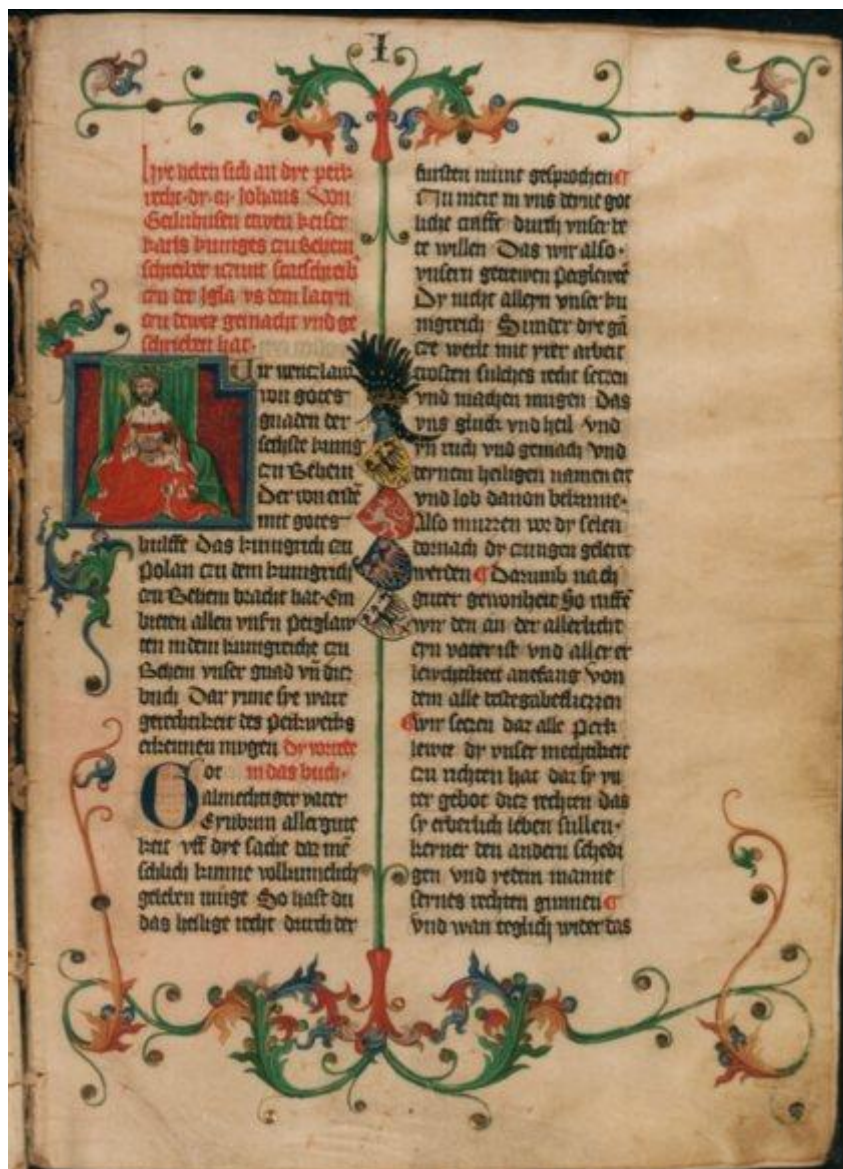 I
Hye heben sich an dye perk
recht dy er Johans Von
Geilnhusen etwen keiser
karls kuniges czu Behem
schreiber vnnd statschreib
czu der Igla vs dem latyn
czu dewcz gemacht vnd ge
schrieben hat
Wir wenczlaw
von gotes
gnaden der
sechste kunig
czu Behem
Der von erste
mit gotes
hulffe das kunigrich czu
Polan czu dem kunigrich
czu Behem bracht hat Em
bieten allen vnsn perglaw
ten in dem kunigriche czu
Behem vnser gnad vn dicz
buch Dar ynne sye ware
gerechtikeit des perkwerks
erkennen mogen dy vorrede
Got in das buch
almechtiger vater
Eynbrun aller gute
keit vff dye sache daz me
schlich kunne volkumelich
geleben muge So hast du
das heilige recht durch der
fursten munt gesprochen
Czu mere in vns deyne got
liche craffe durch vnser be
te willen Das wir also
vnsern getrewen perglewte
Dy nicht alleyn vnser ku
nigreich Sunder dye gan
cze werlt mit yrer arbeit
trosten sulches recht seczen
vnd machen mugen Das
vns gluck vnd heil vnd
yn ruch vnd gemach vnd
deynem heiligen namen ere
vnd lob dauon bekume
Also muzzen vor dy selen
dornach dy czungen geleret
werden Darumb nach
guter gewonheit So ruffe
wir den an der allerlicht
ern vater ist vnd aller er
lewchtikeit anefang von
dem alle beste gabe flizzen
wir seczen daz alle perk
lewte dy vnser mechtikeit
czu richten hat daz sy vn
ter gebot dicz rechten das
sy erberlich leben sullen
keyner den andern schedi
gen vnd yedem manne
seynes rechten gunnen
vnd wan teglich wider das